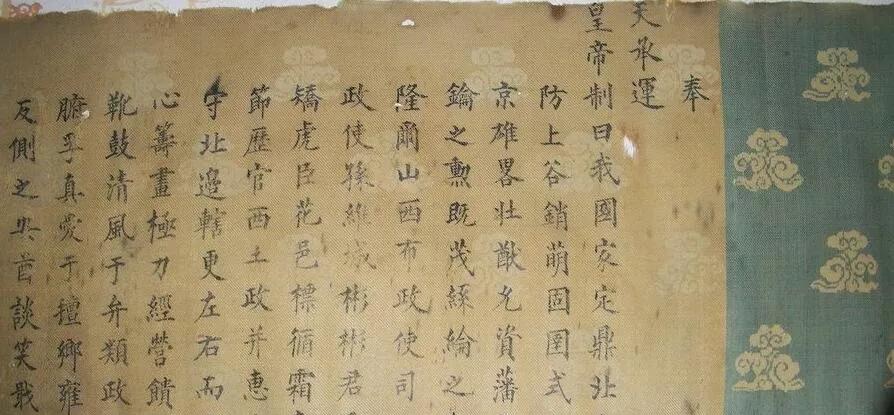 奉
天承運
皇帝制曰我國家定鼎北
防上谷銷萌固圉式
京雄畧壯猷允資藩
鑰之勳既茂絲綸之
隆爾山西布政使司
政使孫維城彬彬君
矯虎臣花邑標循霜
節歷官西土政并惠
守北邊轄更左右而
心籌畫極力經營饋
靴鼓清風于弁類政
腑孚真愛于壇鄉雍
反側之
酋談笑戢